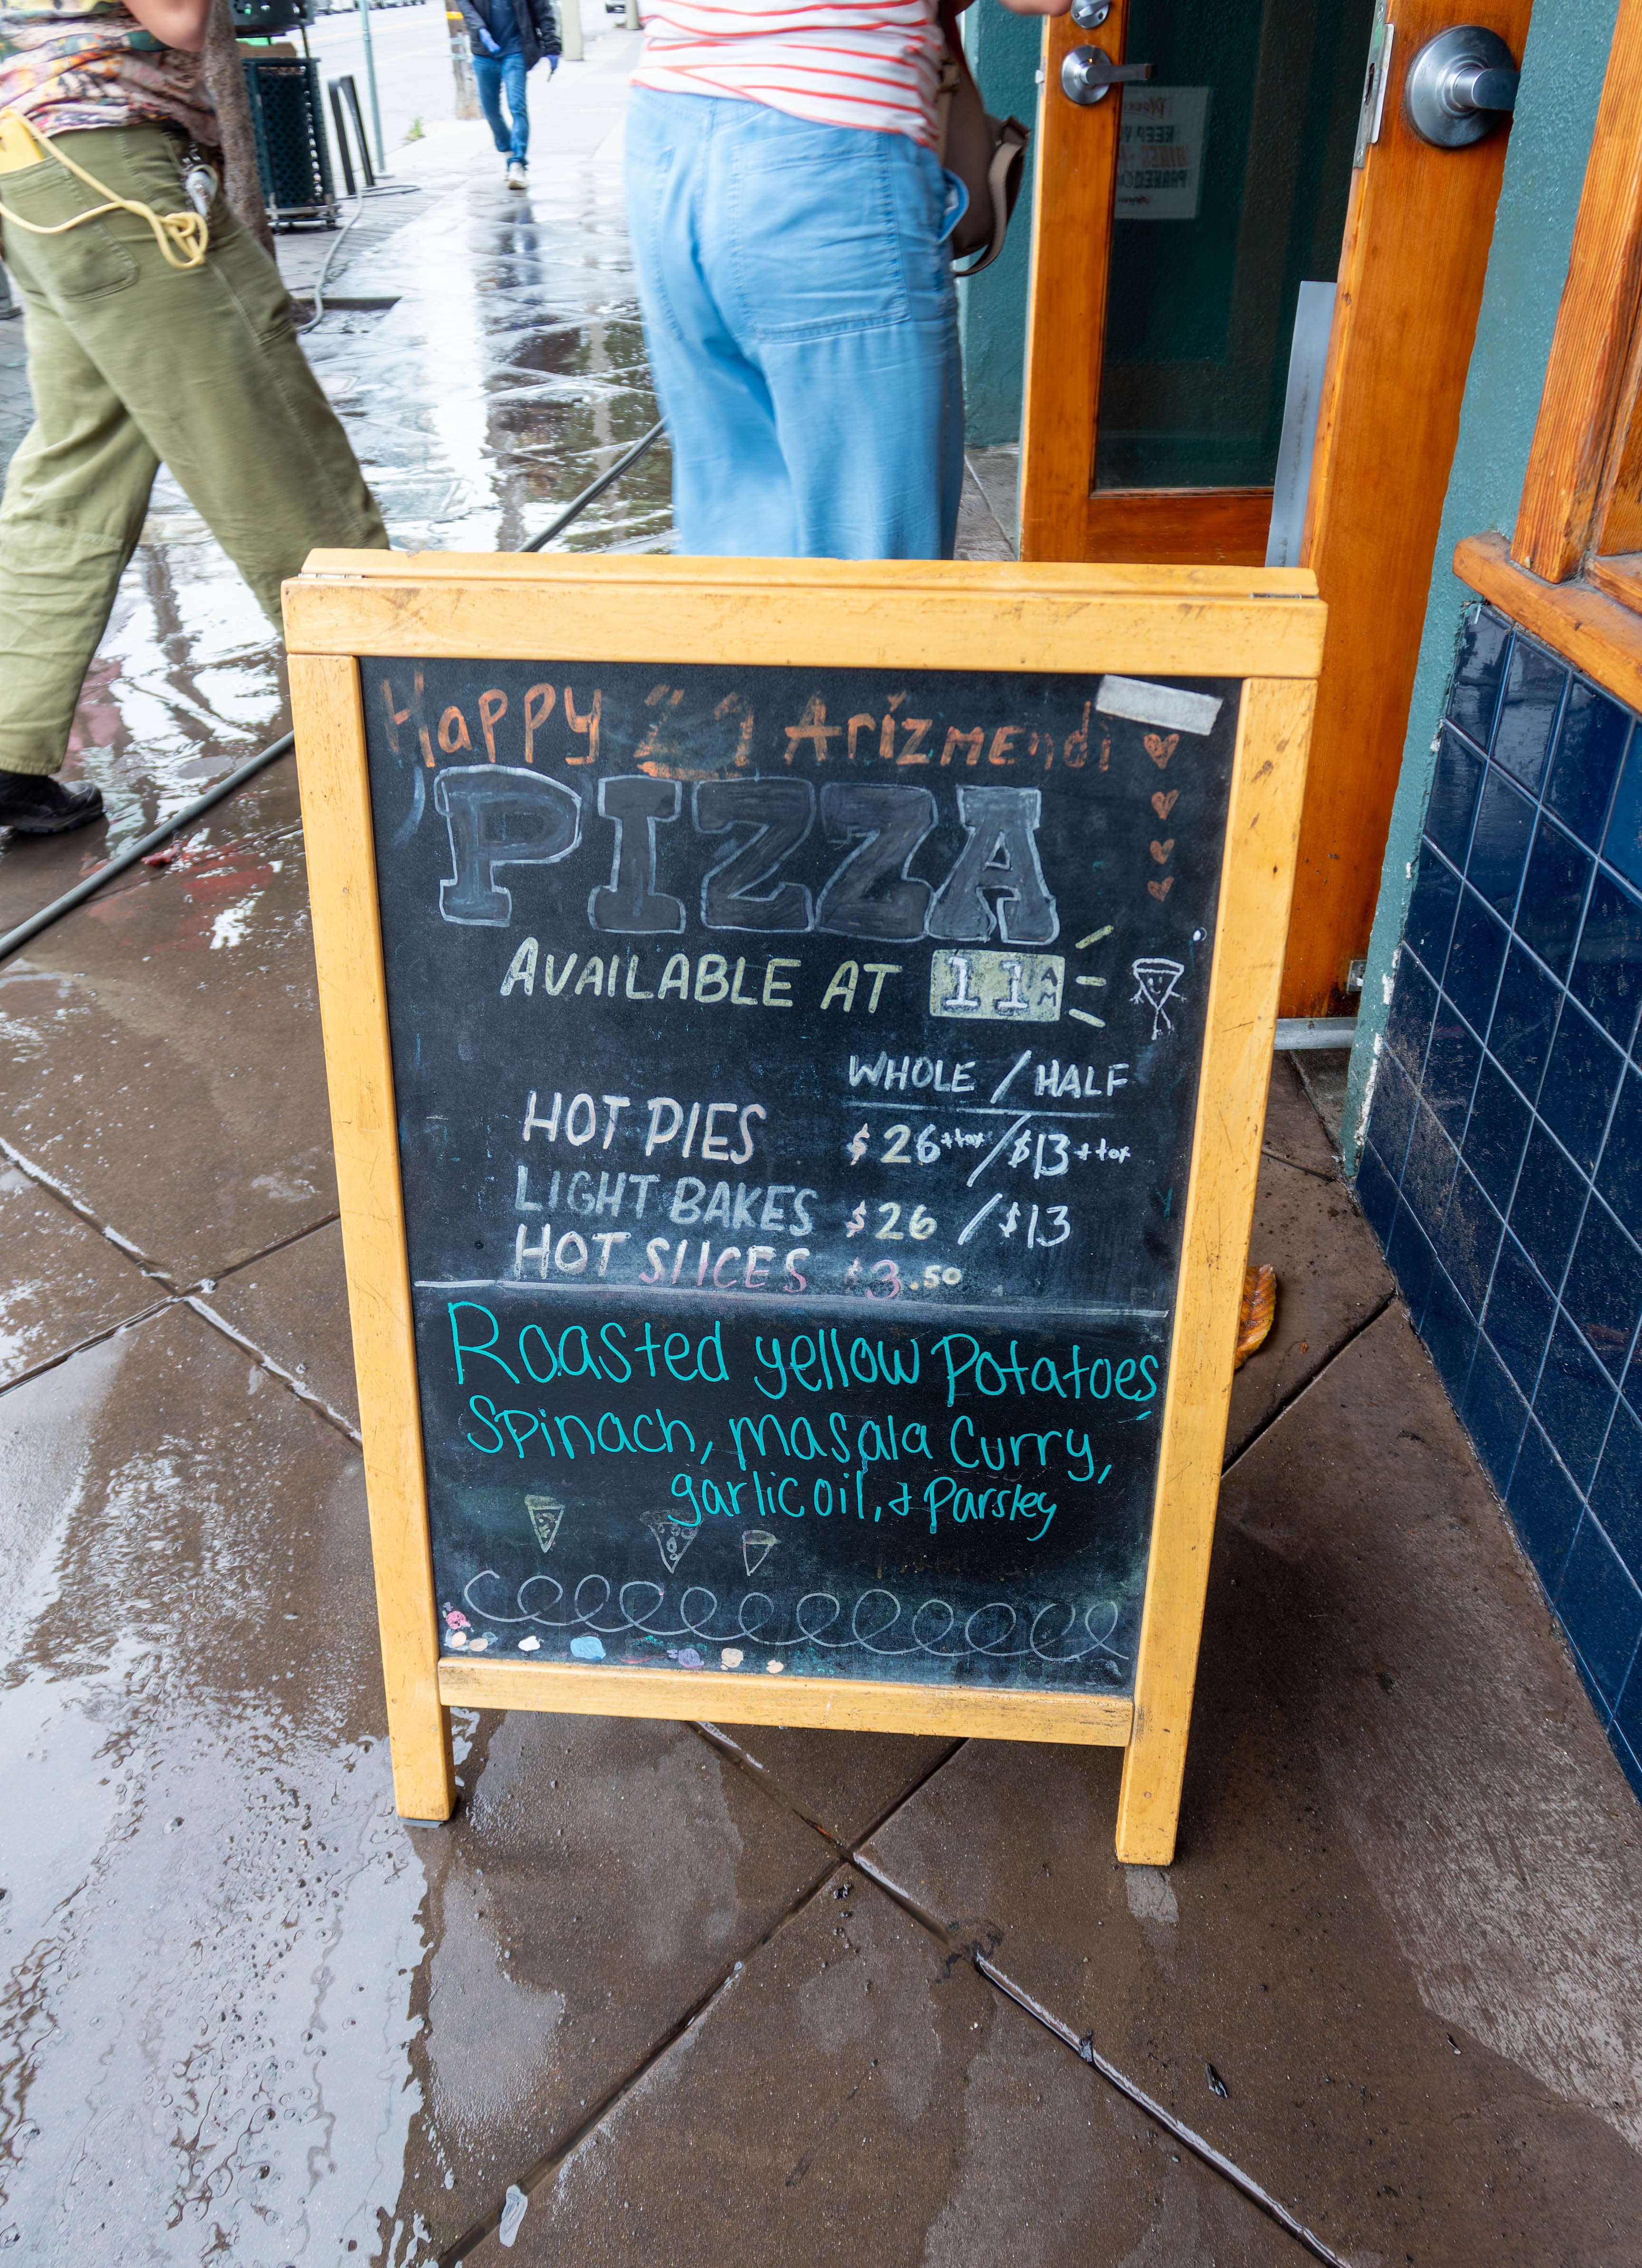 Happy Arízmendi
PIZZA
AVAILABLE AT 11 AM
WHOLE / HALF
HOT PIES $26 +tax / $13 +tax
LIGHT BAKES $26 / $13
HOT SLICES $3.50
Roasted yellow Potatoes
Spinach, masala Curry,
garlic oil, & Parsley